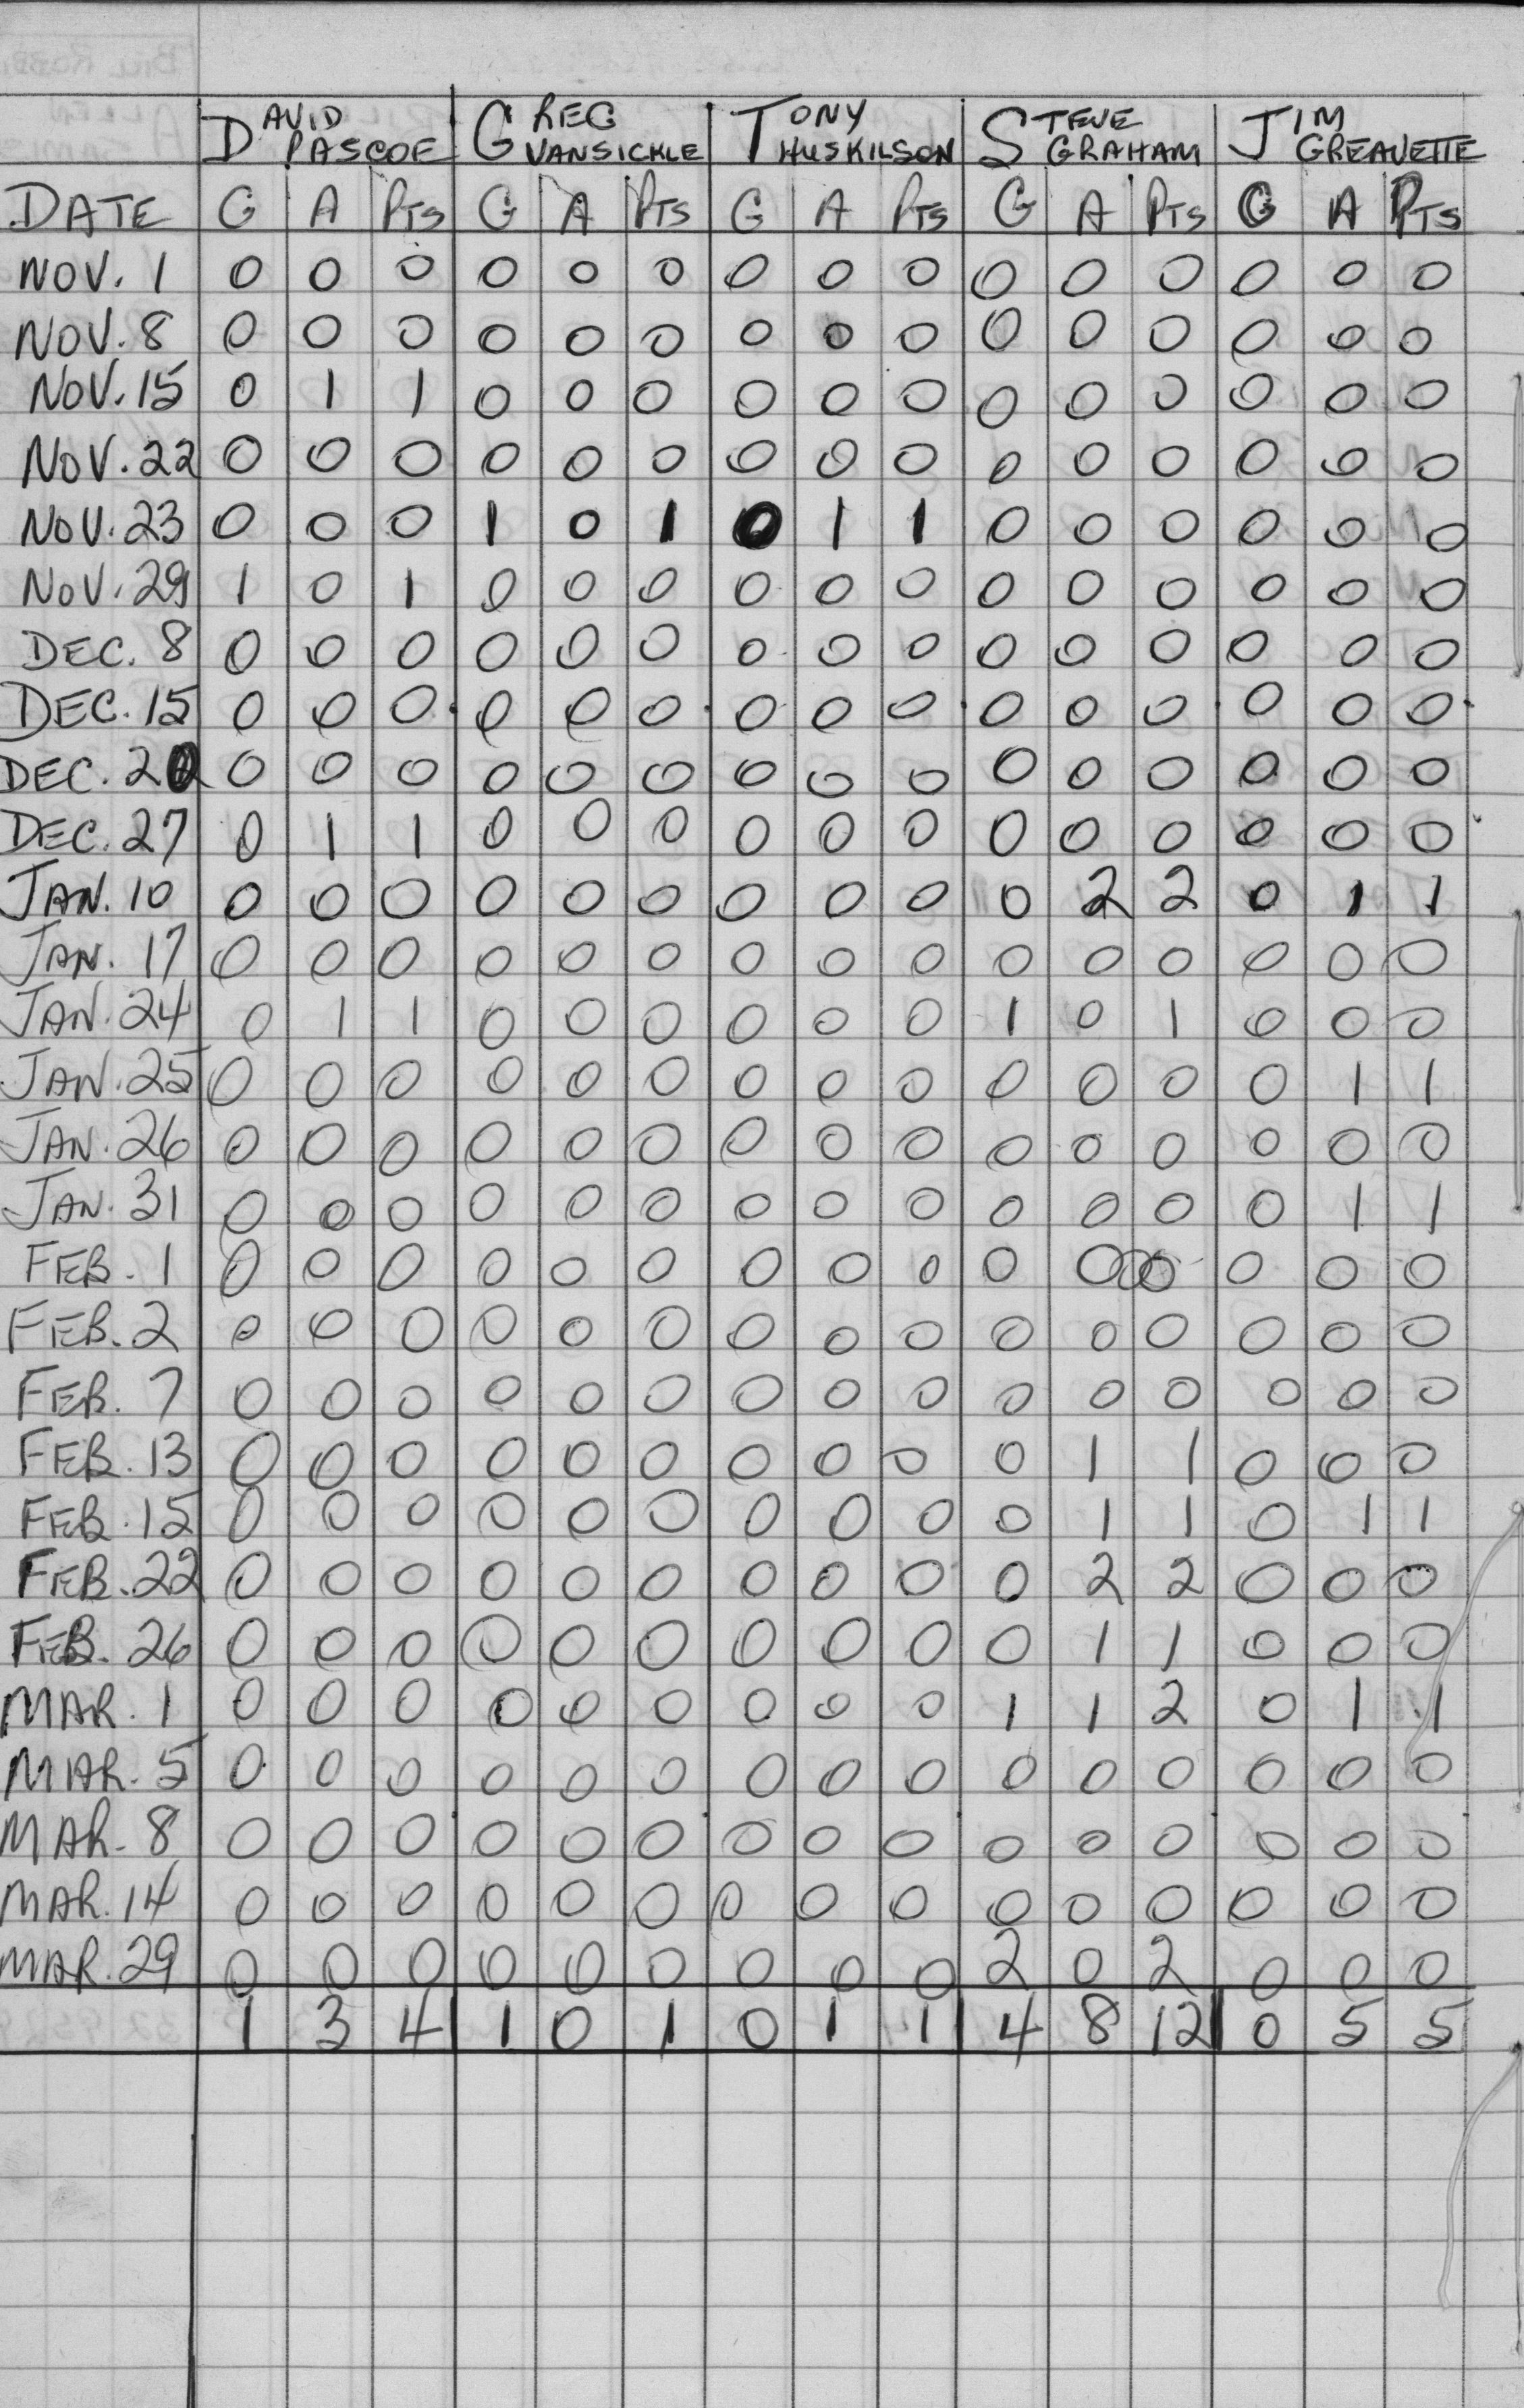 DAVID PASCOE GREG VANSICKLE TONY HUSKILSON STEVE GRAHAM JIM GREAVETTE
DATE G A PTS G A PTS G A PTS G A PTS G A PTS
NOV. 1 0 0 0 0 0 0 0 0 0 0 0 0 0 0 0
NOV. 8 0 0 0 0 0 0 0 0 0 0 0 0 0 0 0
NOV. 15 0 1 1 0 0 0 0 0 0 0 0 0 0 0 0
NOV. 22 0 0 0 0 0 0 0 0 0 0 0 0 0 0 0
NOV. 23 0 0 0 1 0 1 0 1 1 0 0 0 0 0 0
NOV. 29 1 0 1 0 0 0 0 0 0 0 0 0 0 0 0
DEC. 8 0 0 0 0 0 0 0 0 0 0 0 0 0 0 0
DEC. 15 0 0 0 0 0 0 0 0 0 0 0 0 0 0 0
DEC. 20 0 0 0 0 0 0 0 0 0 0 0 0 0 0 0
DEC. 27 0 1 1 0 0 0 0 0 0 0 0 0 0 0 0
JAN. 10 0 0 0 0 0 0 0 0 0 0 2 2 0 1 1
JAN. 17 0 0 0 0 0 0 0 0 0 0 0 0 0 0 0
JAN. 24 0 1 1 0 0 0 0 0 0 1 0 1 0 0 0
JAN. 25 0 0 0 0 0 0 0 0 0 0 0 0 0 1 1
JAN. 26 0 0 0 0 0 0 0 0 0 0 0 0 0 0 0
JAN. 31 0 0 0 0 0 0 0 0 0 0 0 0 0 1 1
FEB. 1 0 0 0 0 0 0 0 0 0 0 0 0 0 0 0
FEB. 2 0 0 0 0 0 0 0 0 0 0 0 0 0 0 0
FEB. 7 0 0 0 0 0 0 0 0 0 0 0 0 0 0 0
FEB. 13 0 0 0 0 0 0 0 0 0 0 1 1 0 0 0
FEB. 15 0 0 0 0 0 0 0 0 0 0 1 1 0 1 1
FEB. 22 0 0 0 0 0 0 0 0 0 0 2 2 0 0 0
FEB. 26 0 0 0 0 0 0 0 0 0 0 1 1 0 0 0
MAR. 1 0 0 0 0 0 0 0 0 0 1 1 2 0 1 1
MAR. 5 0 0 0 0 0 0 0 0 0 0 0 0 0 0 0
MAR. 8 0 0 0 0 0 0 0 0 0 0 0 0 0 0 0
MAR. 14 0 0 0 0 0 0 0 0 0 0 0 0 0 0 0
MAR. 29 0 0 0 0 0 0 0 0 0 2 0 2 0 0 0
1 3 4 1 0 1 0 1 1 4 8 12 0 5 5